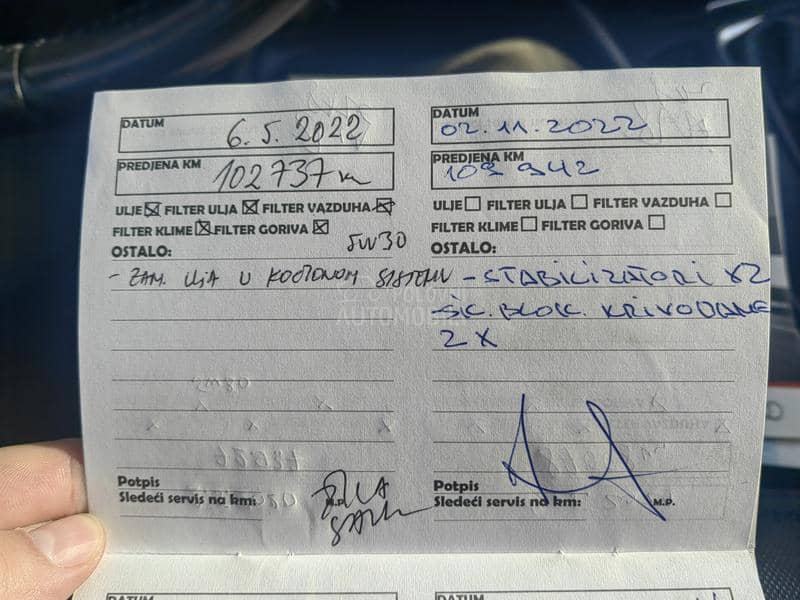 DATUM 6.5.2022
PREDJENA KM 102737 km
ULJE FILTER ULJA FILTER VAZDUHA
FILTER KLIME FILTER GORIVA
5W30
OSTALO:
- ZAM. ULJA U KOČIONOM SISTEMU
Potpis
Sledeći servis na km:
M.P.
DATUM 02.11.2022
PREDJENA KM 109 942
ULJE FILTER ULJA FILTER VAZDUHA
FILTER KLIME FILTER GORIVA
OSTALO:
- STABILIZATORI X2
- SIC. BLOK. KRIVODRME
2X
Potpis
Sledeći servis na km:
M.P.
POLOVNI
AUTOMOBILI
DATUM
DATUM